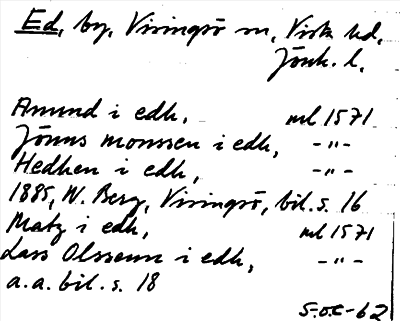 Ed, by, Visingsö sn, Vista hd,
Jönk. l.
Amund i edh, ml 1571
Jönns monssen i edh, - " -
Hedhen i edh, - " -
1885, W. Berg, Visingsö, bil. s. 16
Matz i edh, ml 1571
Lass Olssenn i edh, - " -
a. a. bil. s. 18
S.O.E-62